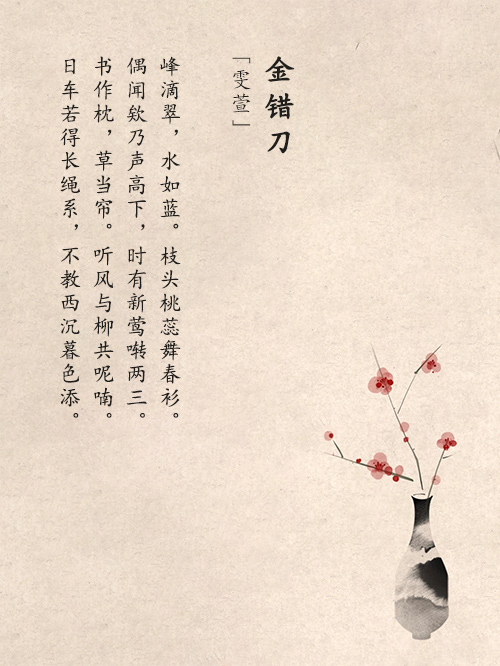 金错刀
「雯萱」
峰滴翠，水如蓝。枝头桃蕊舞春衫。
偶闻欸乃声高下，时有新莺啭两三。
书作枕，草当帘。听风与柳共呢喃。
日车若得长绳系，不教西沉暮色添。